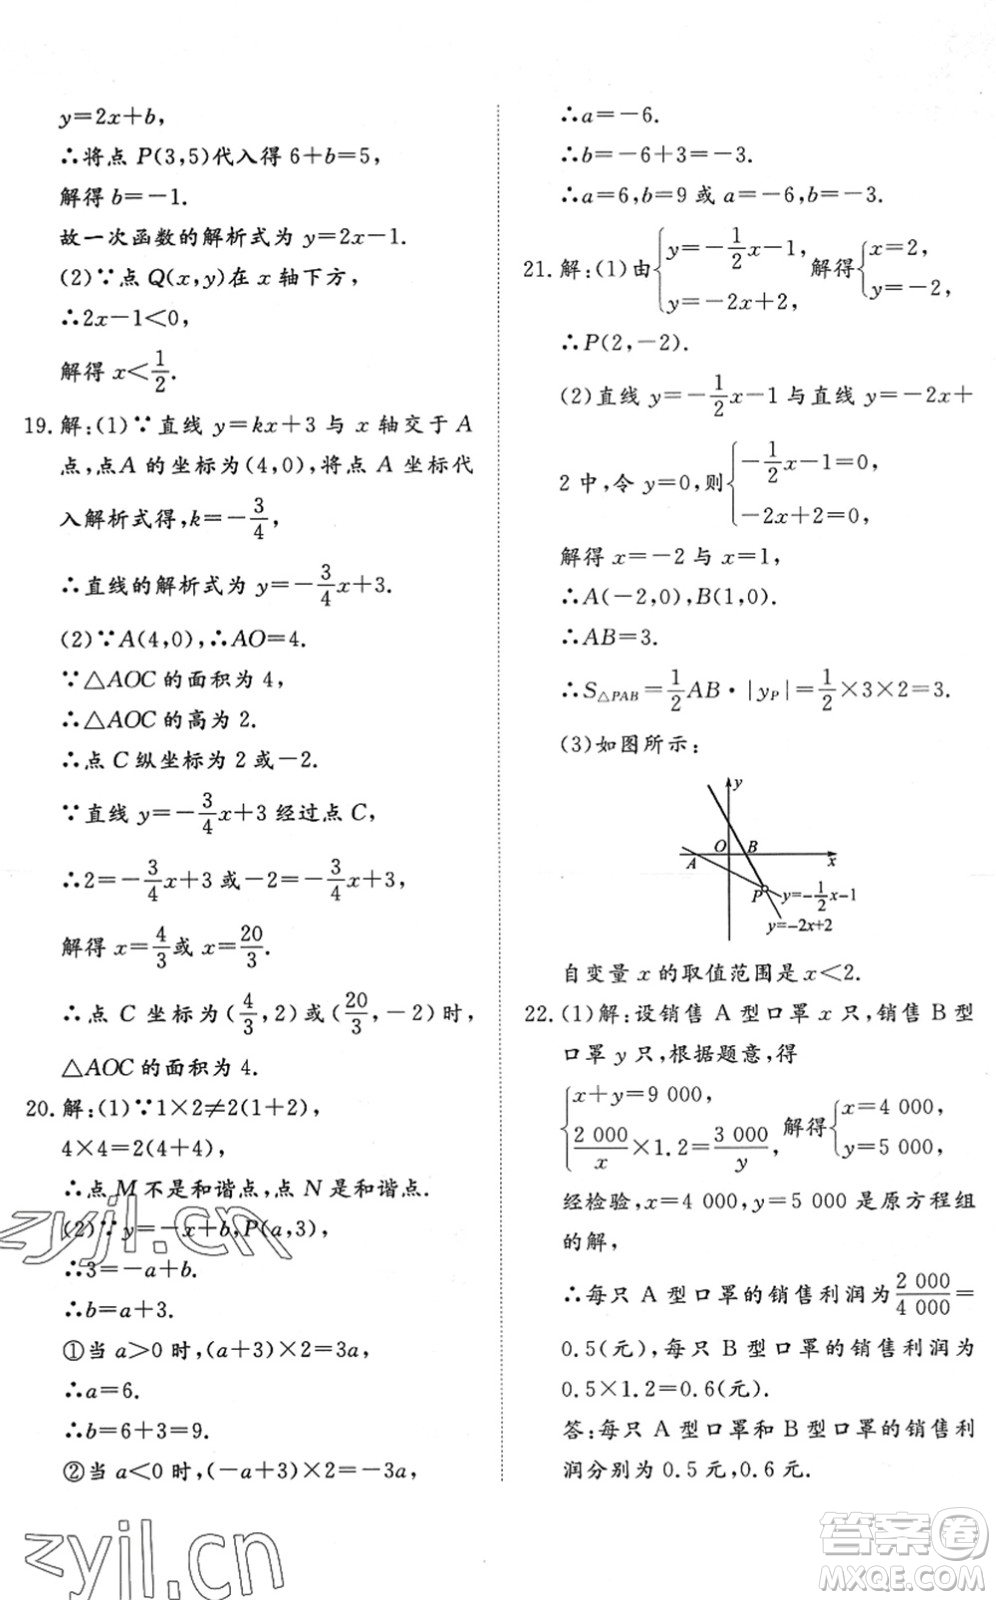 y=2x+b,
∴将点 P(3,5)代入得 6+b=5,
解得 b=-1.
故一次函数的解析式为 y=2x-1.
(2)∵点 Q(x,y)在 x 轴下方,
∴2x-1<0,
解得 x<1/2.
19.解:(1)∵直线 y=kx+3 与 x 轴交于 A
点,点A 的坐标为(4,0),将点 A 坐标代
入解析式得,k=-3/4,
∴直线的解析式为 y=-3/4x+3.
(2)∵A(4,0),∴AO=4.
∵△AOC 的面积为 4,
∴△AOC 的高为 2.
∴点 C 纵坐标为 2 或-2.
∵直线 y=-3/4x+3 经过点 C,
∴2=-3/4x+3 或-2=-3/4x+3,
解得 x=4/3或 x=20/3.
∴点 C 坐标为(4/3,2)或(20/3,-2)时,
△AOC 的面积为 4.
20.解:(1)∵1×2≠2(1+2),
4×4=2(4+4),
∴点 M 不是和谐点,点 N 是和谐点.
(2)∵y=-x+b,P(a,3),
∴3=-a+b.
∴b=a+3.
①当 a>0 时,(a+3)×2=3a,
∴a=6.
∴b=6+3=9.
②当 a<0 时,(-a+3)×2=-3a,
∴a=-6.
∴b=-6+3=-3.
∴a=6,b=9 或 a=-6,b=-3.
21.解:(1)由{y=-1/2x-1, y=-2x+2, 解得{x=2, y=-2,
∴P(2,-2).
(2)直线 y=-1/2x-1 与直线 y=-2x+
2 中,令 y=0,则{-1/2x-1=0, -2x+2=0,
解得 x=-2 与 x=1,
∴A(-2,0),B(1,0).
∴AB=3.
∴S△PAB=1/2AB·|yP|=1/2×3×2=3.
(3)如图所示:
y
O B
A x
P y=-1/2x-1
y=-2x+2
自变量 x 的取值范围是 x<2.
22.(1)解:设销售 A 型口罩 x 只,销售 B 型
口罩 y 只,根据题意,得
{x+y=9 000, 2 000/x×1.2=3 000/y, 解得{x=4 000, y=5 000,
经检验,x=4 000,y=5 000 是原方程组
的解,
∴每只 A 型口罩的销售利润为2 000/4 000=
0.5(元),每只 B 型口罩的销售利润为
0.5×1.2=0.6(元).
答:每只 A 型口罩和 B 型口罩的销售利
润分别为 0.5 元,0.6 元.
zyjl.cn
zyjl.cn
答案圈
MXQE.COM